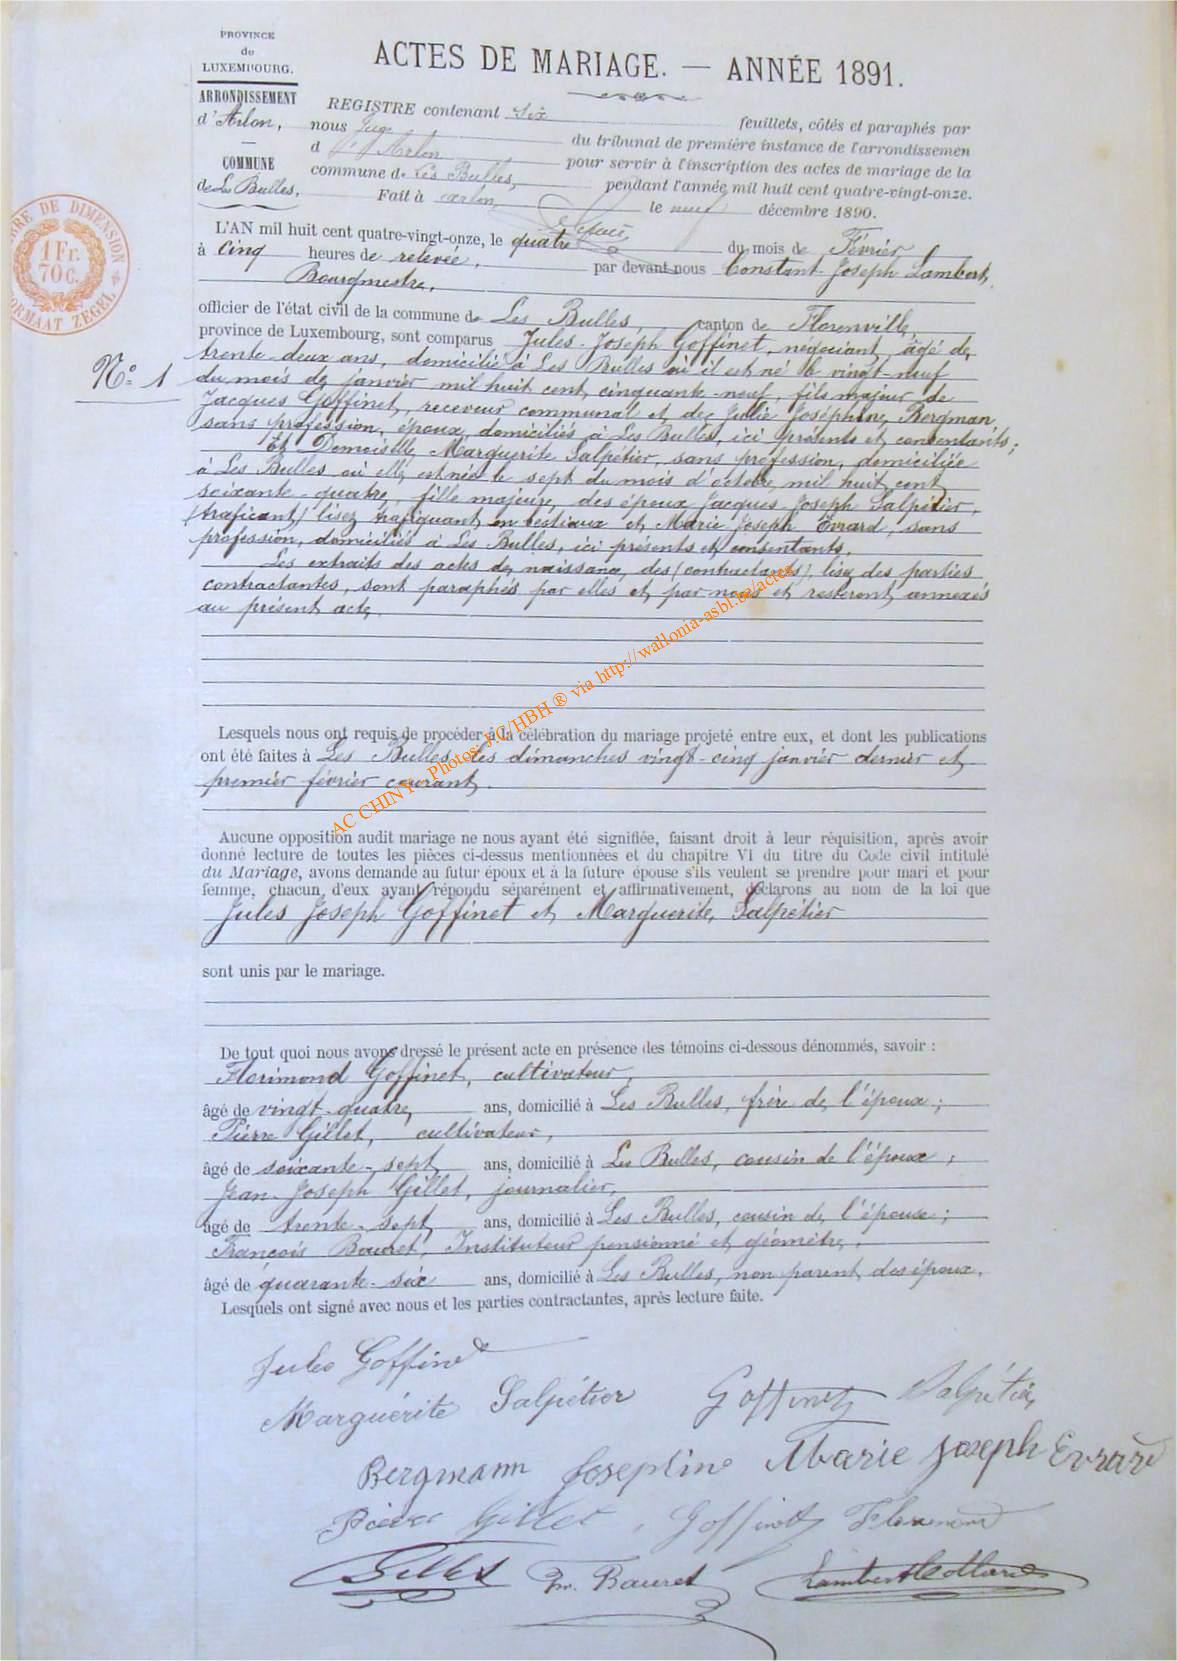 PROVINCE
de
LUXEMBOURG.
ARRONDISSEMENT
d'Arlon,
COMMUNE
de Les Bulles.
ACTES DE MARIAGE. — ANNÉE 1891.
REGISTRE contenant Six feuillets, côtés et paraphés par
nous Juge du tribunal de première instance de l'arrondissemen
d'Arlon pour servir à l'inscription des actes de mariage de la
commune de Les Bulles, pendant l'année mil huit cent quatre-vingt-onze.
Fait à Arlon le neuf décembre 1890.
TIMBRE DE DIMENSION
1 Fr.
70 C.
FORMAAT ZEGEL
L'AN mil huit cent quatre-vingt-onze, le quatre du mois de Février
à cinq heures de relevée, par devant nous Constant-Joseph Lambert,
Bourgmestre,
officier de l'état civil de la commune de Les Bulles, canton de Florenville,
province de Luxembourg, sont comparus Jules-Joseph Goffinet, négociant, âgé de
N° 1
trente-deux ans, domicilié à Les Bulles où il est né le vingt-neuf
du mois de janvier mil huit cent cinquante-neuf, fils majeur de
Jacques Goffinet, receveur communal et de Julie Joséphine Bergman
sans profession, époux, domiciliés à Les Bulles, ici présents et consentants;
Et Demoiselle Marguerite Salpétier, sans profession, domiciliée
à Les Bulles où elle est née le sept du mois d'octobre mil huit cent
soixante-quatre, fille majeure des époux Jacques Joseph Salpétier,
(traficant) lisez trafiquant en bestiaux et Marie Joseph Evrard, sans
profession, domiciliés à Les Bulles, ici présents et consentants.
Les extraits des actes de naissance des (contractants), lisez des parties
contractantes, sont paraphés par elles et par nous et resteront annexés
au présent acte.
Lesquels nous ont requis de procéder à la célébration du mariage projeté entre eux, et dont les publications
ont été faites à Les Bulles, les dimanches vingt-cinq janvier dernier et
premier février courant.
AC CHINY - Photos: J.C/HBH ® via http://wallonia-asbl.be/actes
Aucune opposition audit mariage ne nous ayant été signifiée, faisant droit à leur réquisition, après avoir
donné lecture de toutes les pièces ci-dessus mentionnées et du chapitre VI du titre du Code civil intitulé
du Mariage, avons demandé au futur époux et à la future épouse s'ils veulent se prendre pour mari et pour
femme, chacun d'eux ayant répondu séparément et affirmativement, déclarons au nom de la loi que
Jules Joseph Goffinet et Marguerite Salpétier
sont unis par le mariage.
De tout quoi nous avons dressé le présent acte en présence des témoins ci-dessous dénommés, savoir :
Florimond Goffinet, cultivateur,
âgé de vingt-quatre ans, domicilié à Les Bulles, frère de l'époux;
Pierre Gillet, cultivateur,
âgé de soixante-sept ans, domicilié à Les Bulles, cousin de l'époux;
Jean-Joseph Gillet, journalier,
âgé de trente-sept ans, domicilié à Les Bulles, cousin de l'épouse;
François Bauret, Instituteur pensionné et géomètre,
âgé de quarante-six ans, domicilié à Les Bulles, non parent des époux.
Lesquels ont signé avec nous et les parties contractantes, après lecture faite.
Jules Goffinet
Marguérite Salpétier Goffinet Salpétier
Bergmann Joséphine Marie Joseph Evrard
Pierre Gillet Goffinet Florimond
Gillet Fr. Bauret Lambert Collard